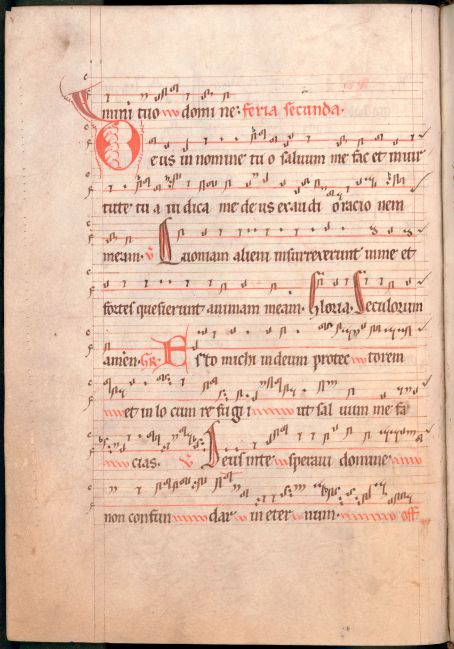 mini tuo domi ne. feria secunda.
Deus in nomine tu o saluum me fac et in uir
tute tu a iu dica me deus exaudi oracio nem
meam. V Quoniam alieni insurrexerunt in me et
fortes quesierunt animam meam. Gloria. Seculorum
amen. GR Esto michi in deum protec torem
et in lo cum re fu gi ut sal uum me fa
cias. V Deus in te speraui domine
non confun dar in eter num. off